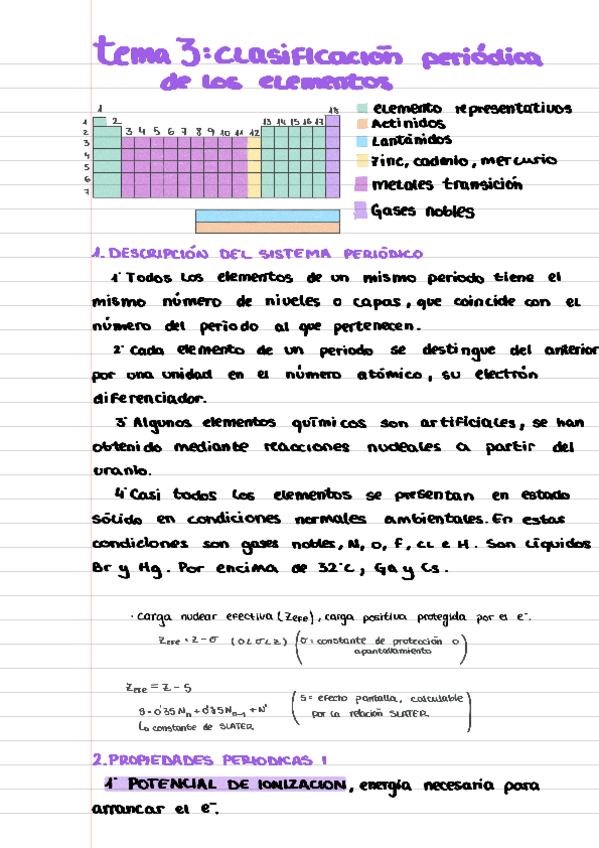 tema 3: clasificación periódica
de los elementos
1
18
2
13 14 15 16 17
3 4 5 6 7 8 9 10 11 12
1
2
3
4
5
6
7
elemento representativos
Actinidos
Lantánidos
Zinc, cadmio, mercurio
metales transición
Gases nobles
1. DESCRIPCIÓN DEL SISTEMA PERIÓDICO
1· Todos los elementos de un mismo periodo tiene el
mismo número de niveles o capas, que coincide con el
número del periodo al que pertenecen.
2· Cada elemento de un periodo se destingue del anterior
por una unidad en el número atómico, su electrón
diferenciador.
3· Algunos elementos químicos son artificiales, se han
obtenido mediante reacciones nucleales a partir del
uranio.
4· Casi todos los elementos se presentan en estado
sólido en condiciones normales ambientales. En estas
condiciones son gases nobles, N, O, F, CL e H. Son líquidos
Br y Hg. Por encima de 32°C, Ga y Cs.
· carga nuclear efectiva (Zefe), carga positiva protegida por el e-.
Zefe = Z - σ (0 ≤ σ ≤ Z) (σ = constante de protección o
apantallamiento)
Zefe = Z - S
S = 0'35 Nn + 0'85 Nn-1 + N'
Lo constante de SLATER.
(S = efecto pantalla, calculable
por la relación SLATER.)
2. PROPIEDADES PERIODICAS I
1· POTENCIAL DE IONIZACION, energía necesaria para
arrancar el e-.